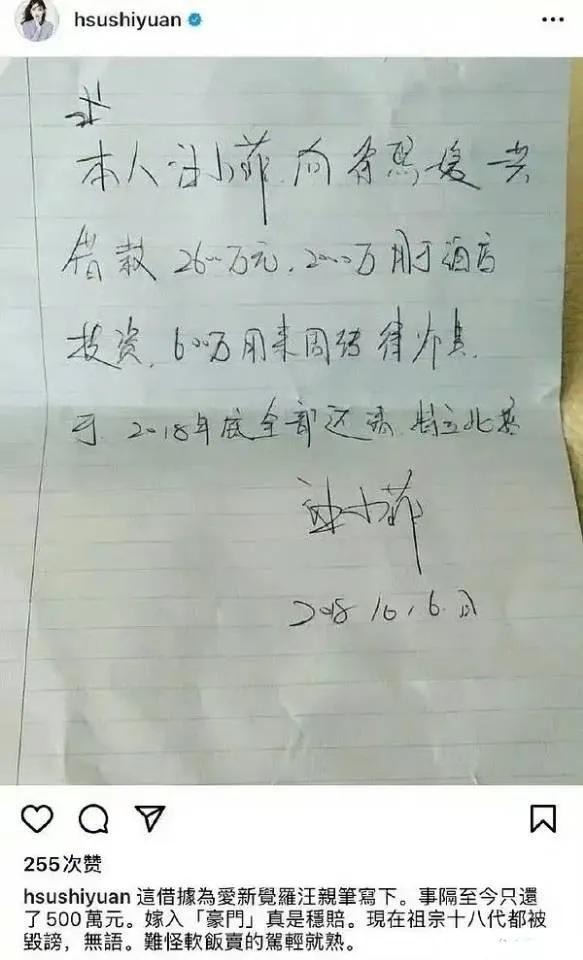 hsushiyuan
本人汪小菲向徐熙媛共
借款2600万元,2000万用于酒店
投资,600万用来周转
于2018年底全部还清,特立此
汪小菲
2018 10,6日
255次赞
hsushiyuan 這借據為愛新覺羅汪親筆寫下。事隔至今只還
了500萬元。嫁入「豪門」真是穩賠。現在祖宗十八代都被
毀謗,無語。難怪軟飯賣的駕輕就熟。